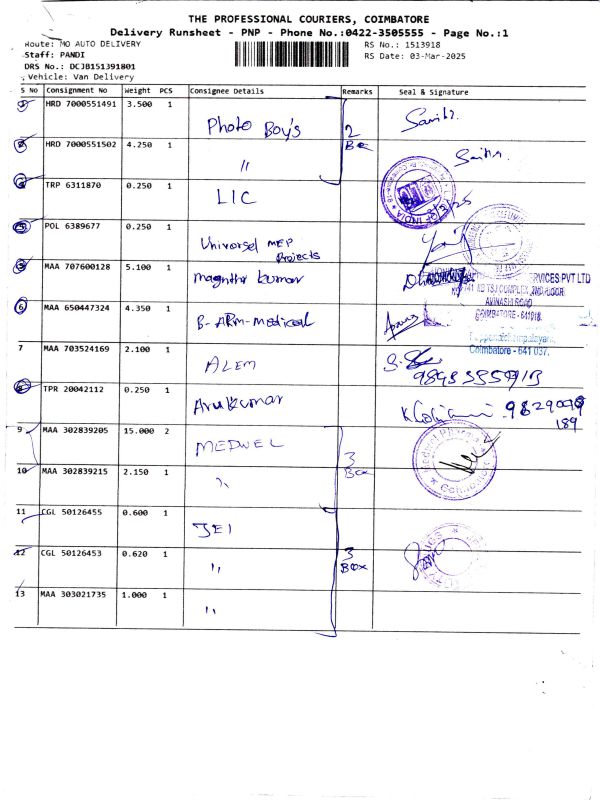 THE PROFESSIONAL COURIERS, COIMBATORE
Delivery Runsheet - PNP - Phone No.:0422-3505555 - Page No.:1
Route: MO AUTO DELIVERY
RS No.: 1513918
Staff: PANDI
RS Date: 03-Mar-2025
DRS No.: DCJB151391801
Vehicle: Van Delivery
S No Consignment No Weight PCS Consignee Details Remarks Seal & Signature
1 HRD 7000551491 3.500 1 Photo Boy's 2
2 HRD 7000551502 4.250 1 "
4 TRP 6311870 0.250 1 LIC
5 POL 6389677 0.250 1 Universel MEP Projects
MAA 707600128 5.100 1 kumar
SERVICES PVT LTD
AVINASHI ROAD
COIMBATORE - 641018.
6 MAA 650447324 4.350 1 B-ARM-medical
Coimbatore - 641 037.
7 MAA 703524169 2.100 1 ALEM
8 TPR 20042112 0.250 1 Arulkumar
189
9 MAA 302839205 15.000 2 MEDWEL 3 Box
10 MAA 302839215 2.150 1 "
11 CGL 50126455 0.600 1 JEI
12 CGL 50126453 0.620 1 " 3 Box
13 MAA 303021735 1.000 1 "